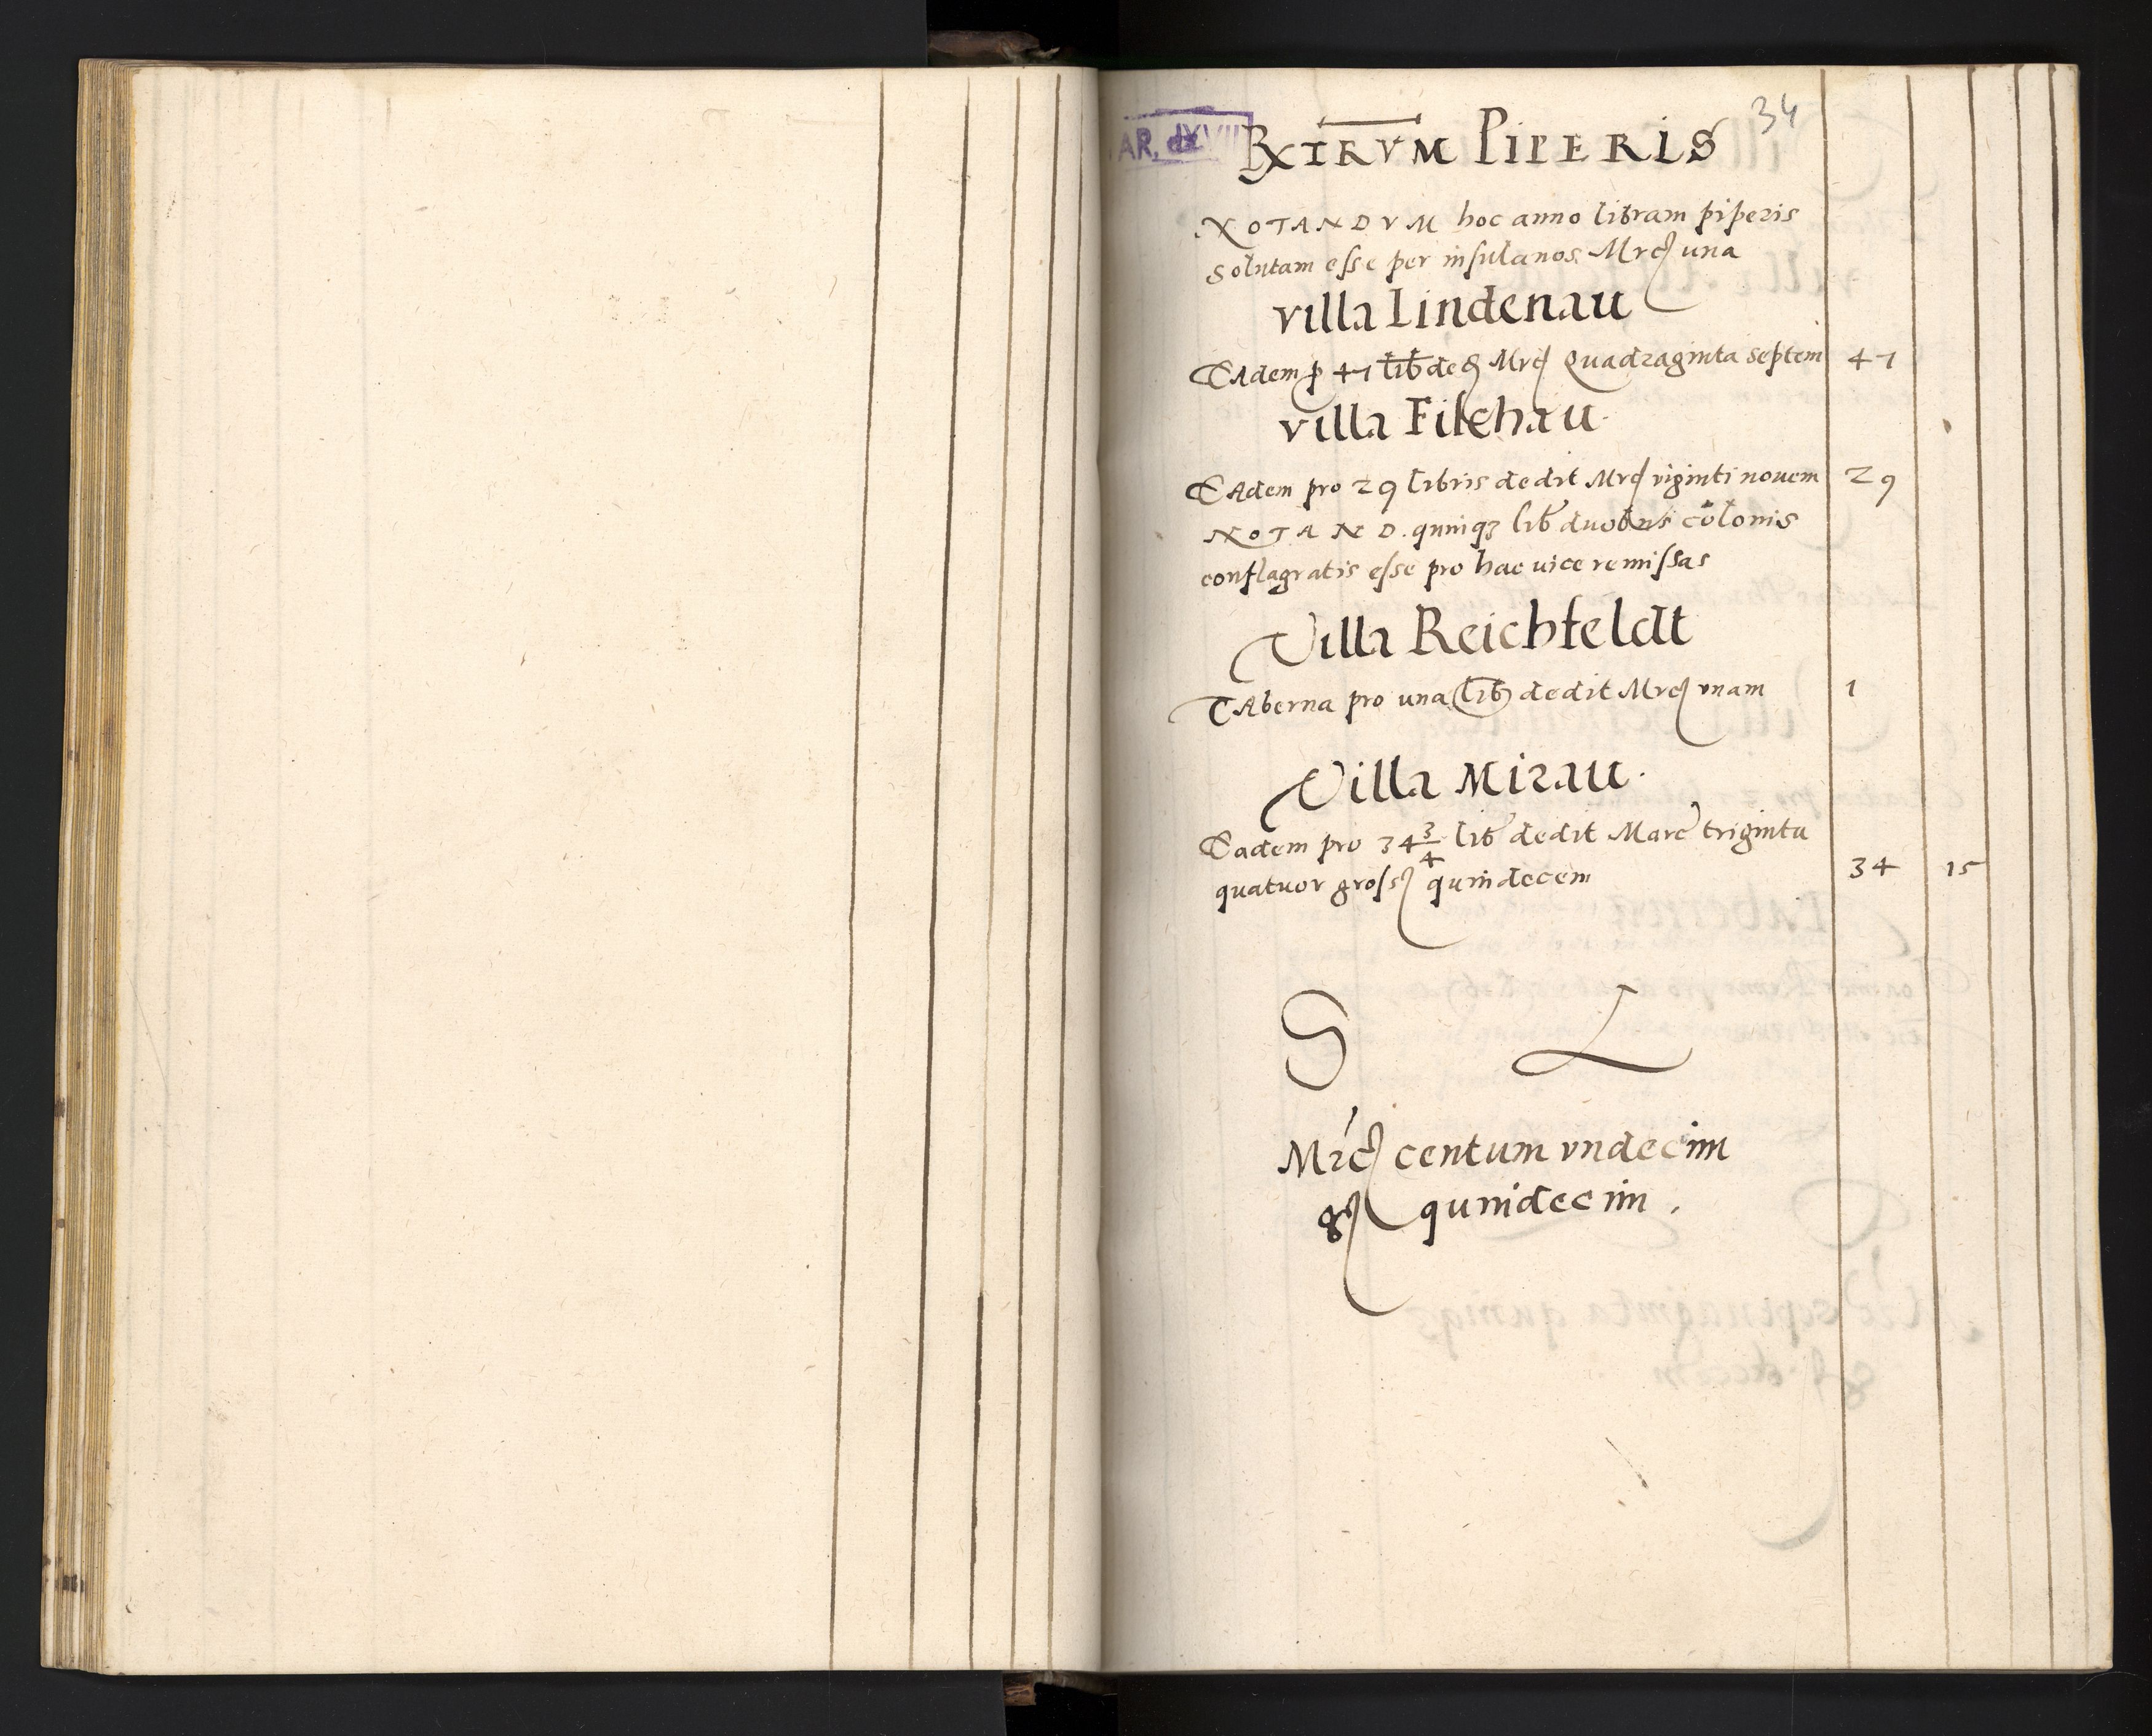 34
AR.
PIPERIS
NOTANDVM hoc anno libram piperis
Solutam esse per insulanos Mrc una
villa Lindenau
EAdem p 47 lib ded Mrc Quadraginta septem 47
villa Fischau.
EAdem pro 29 libris dedit Mrc viginti novem 29
NOTAND. quinqꝫ lib duobus colonis
conflagratis esse pro hac uice remissas
Villa Reichfeldt
TAberna pro una lib dedit Mrc vnam 1
Villa Mirau.
Eadem pro 34 3/4 lib dedit Marc triginta
quatuor gross quindecem 34 15
S L
Mrc centum vndecim
g quindecim.